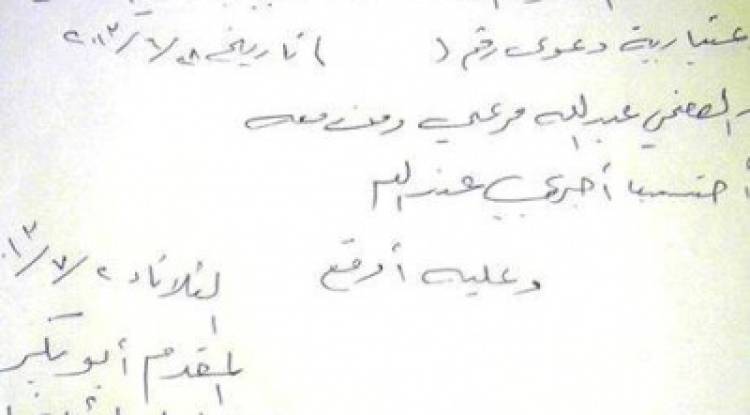 عتبارية دعوى رقم (          ) تاريخ ٢٠١٣/٦/٢٨
الصحفي عبدالله مرعي ومن معه
أحتسبا أجري عند الله
وعليه أوقع
الثلاثاء ٢/٧/١٣
المقدم أبو بكر